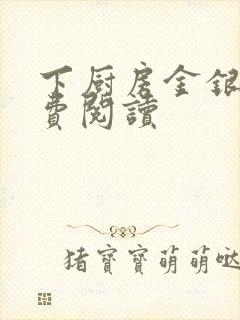 下厨房金银
费阅读
猪宝宝萌萌哒